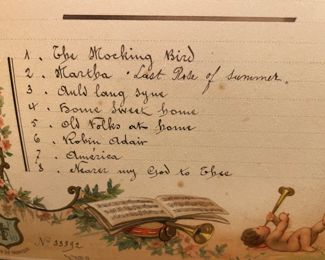 1. The Mocking Bird
2. Martha. Last Rose of Summer.
3. Auld lang syne
4. Home Sweet home
5. Old Folks at home
6. Robin Adair
7. America
8. Nearer my God to Thee
No 33392